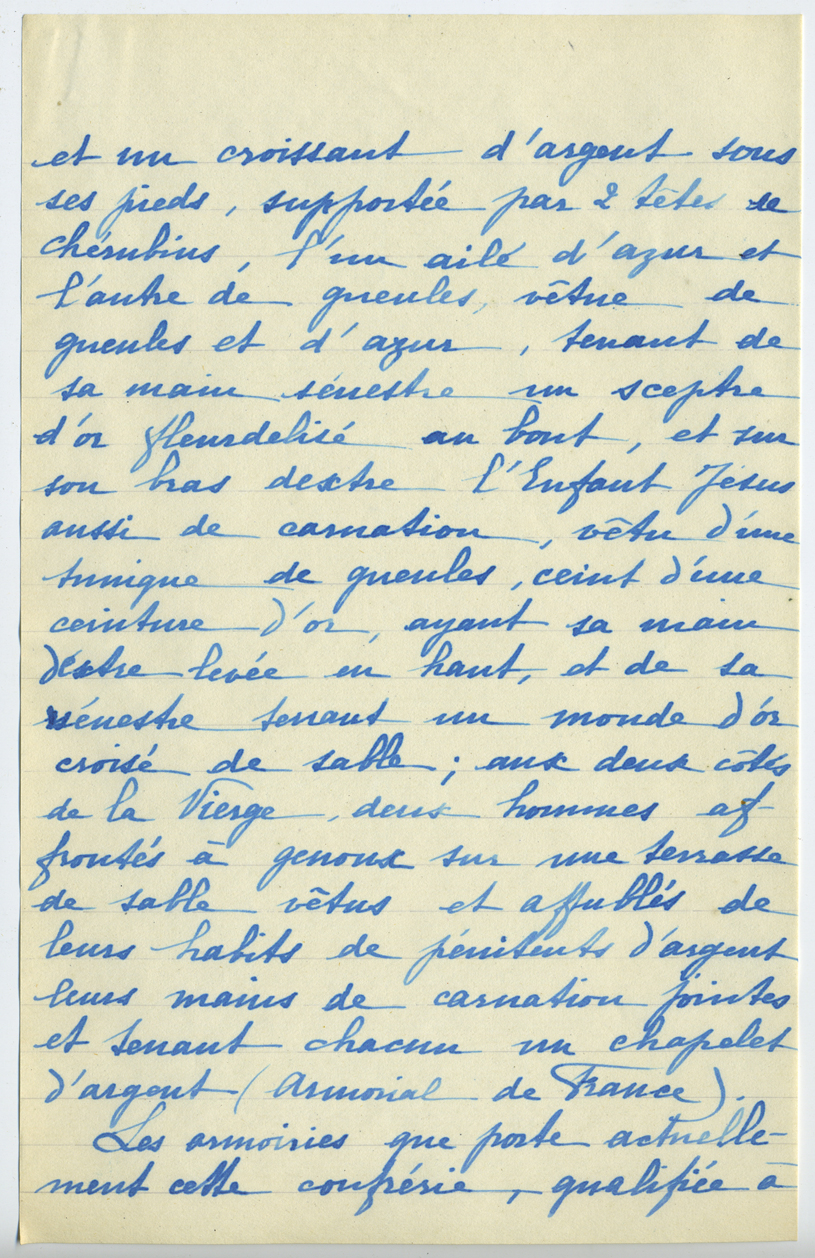 et un croissant d'argent sous
ses pieds, supportée par 2 têtes de
chérubins, l'un ailé d'azur et
l'autre de gueules, vêtue de
gueules et d'azur, tenant de
sa main sénestre un sceptre
d'or fleurdelisé au bout, et sur
son bras dextre l'Enfant Jésus
aussi de carnation, vêtu d'une
tunique de gueules, ceint d'une
ceinture d'or, ayant sa main
dextre levée en haut, et de sa
sénestre tenant un monde d'or
croisé de sable; aux deux côtés
de la Vierge, deux hommes af-
frontés à genoux sur une terrasse
de sable vêtus et affublés de
leurs habits de pénitents d'argent
leurs mains de carnation jointes
et tenant chacun un chapelet
d'argent (Armorial de France).
Les armoiries que porte actuelle-
ment cette confrérie, qualifiée à